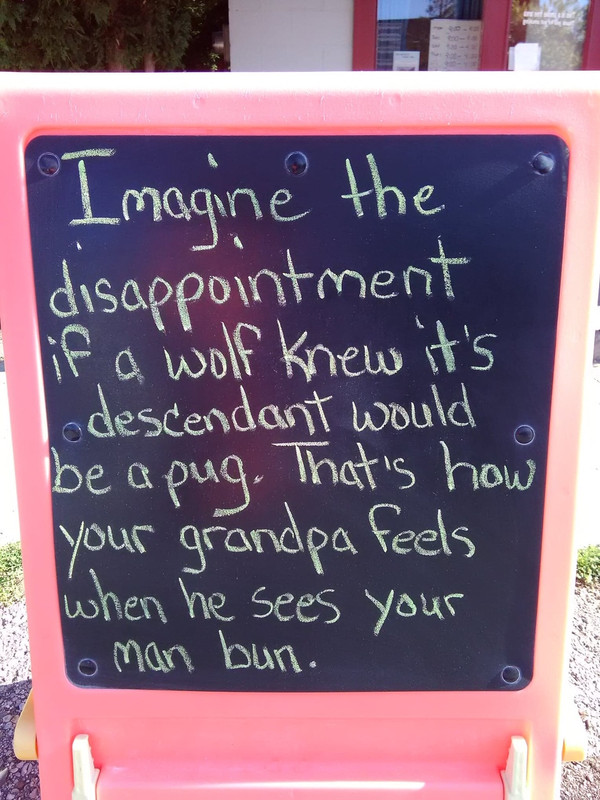 Imagine the
disappointment
if a wolf knew it's
descendant would
be a pug. That's how
your grandpa feels
when he sees your
man bun.